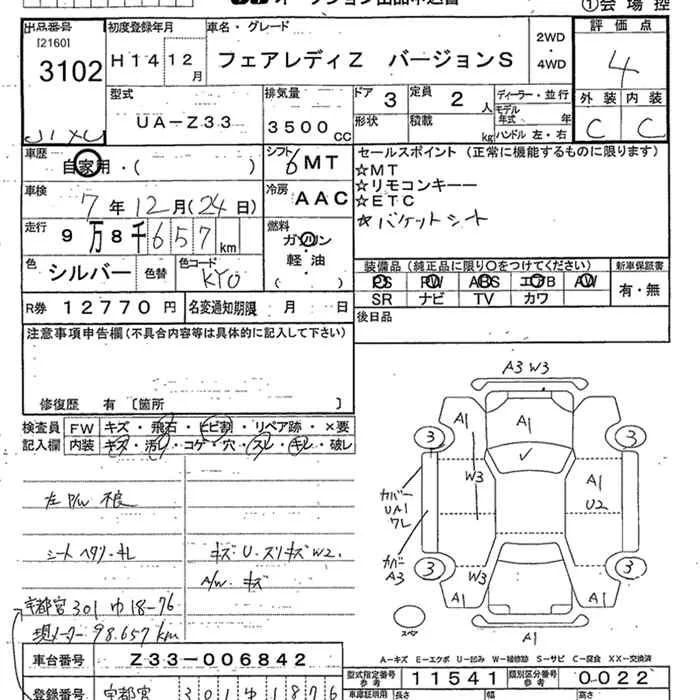 オークション出品申込書
①会場控
出品番号
[2160]
3102
初度登録年月
H14 12月
車名・グレード
フェアレディZ バージョンS
2WD・4WD
評価点
4
外装 内装
C C
型式
UA-Z33
排気量
3500cc
ドア 3
形状
定員 2人
積載 kg
ディーラー・並行
モデル年式 年
ハンドル 左・右
車歴
自家用・( )
シフト 6MT
セールスポイント(正常に機能するものに限ります)
☆MT
☆リモコンキーー
☆ETC
☆バケットシート
車検
7年12月(24日)
冷房 AAC
走行
9万8千657km
燃料
ガソリン
軽油
( )
色 シルバー 色替
色コード KYO
装備品(純正品に限り○をつけてください)
PS PW ABS エアB AW
SR ナビ TV カワ
新車保証書
有・無
R券 12770円
名変通知期限 月 日
後日品
注意事項申告欄(不具合内容等は具体的に記入して下さい)
修復歴 有 [箇所 ]
検査員記入欄
FW キズ・飛石・ヒビ割・リペア跡・×要
内装 キズ・汚レ・コゲ・穴・スレ・キレ・破レ
左P/W 不良
シート ヘタリ・キレ
キズ・U・スリキズW2.
A/W. キズ
宇都宮301ゆ18-76
現メーター98.657km
A3 W3
A1
A1
3
3
W3
A1
U2
カバー
UA1
ワレ
カバー
A3
3
3
W3
A1
A1
スペア
A1
A…キズ E…エクボ U…凹み W…補修跡 S…サビ C…腐食 XX…交換済
車台番号 Z33-006842
型式指定番号 参考 11541
類別区分番号 参考 0022
登録番号 宇都宮 301 ゆ 1876
車庫証明用 参考
長さ
幅
高さ